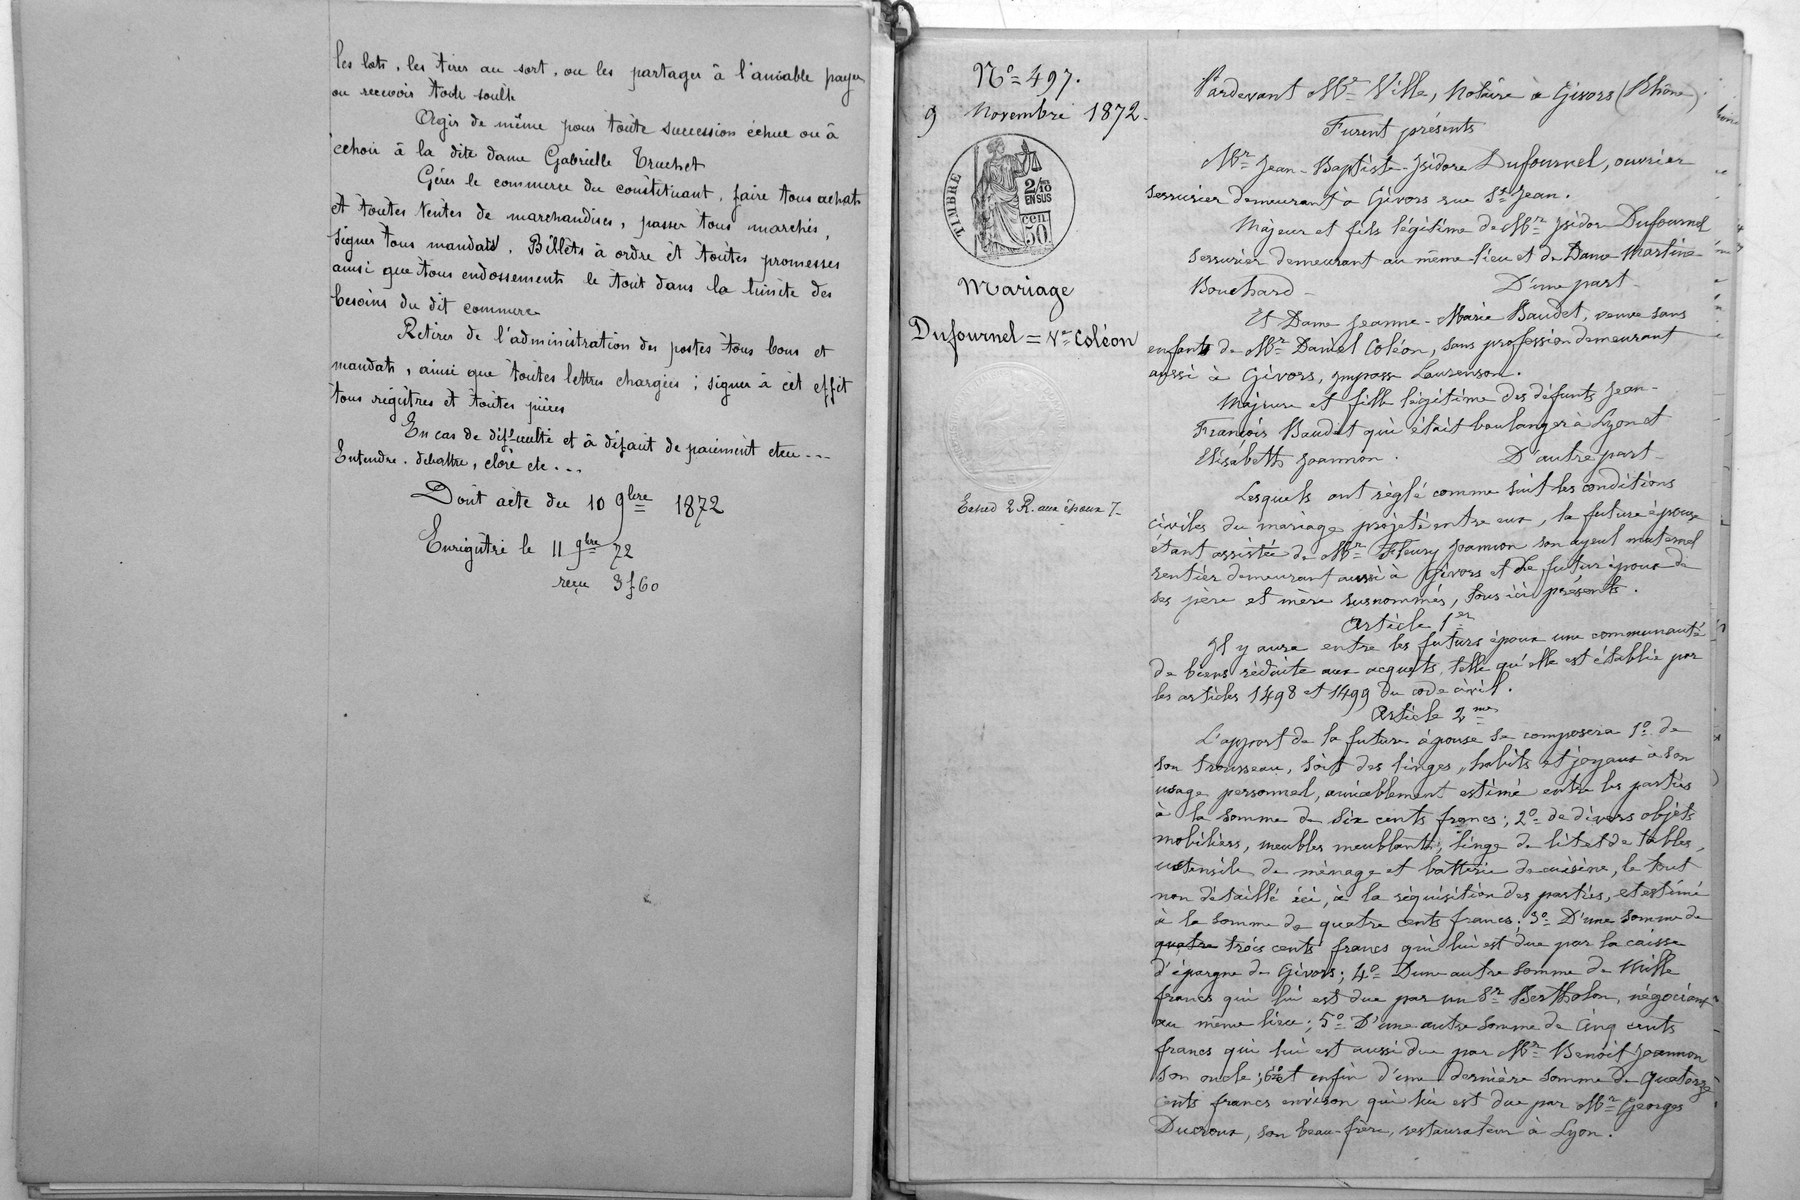 les lots, les tirer au sort, ou les partager à l'amiable payer
ou recevoir toute soulte
Agir de même pour toute succession échue ou à
échoir à la dite dame Gabrielle Truchet
Gérer le commerce du constituant, faire tous achats
et toutes ventes de marchandises, passer tous marchés,
signer tous mandats, Billets à ordre et toutes promesses
ainsi que tous endossements le tout dans la limite des
besoins du dit commerce
Retirer de l'administration des postes tous bons et
mandats, ainsi que toutes lettres chargées ; signer à cet effet
tous régistres et toutes pièces
En cas de difficulté et à défaut de paiement etcu ...
Entendre, débattre, clore etc ...
Dont acte du 10 9bre 1872
Enrigistré le 11 9bre 72
reçu 3f60
No 497.
9 Novembre 1872.
TIMBRE
2/10 EN SUS
cen 50
Mariage
Dufournel = Ve Coléon
Exped 2 R. aux époux
Pardevant Me Ville, Notaire à Givors (Rhône).
Furent présents
Mr Jean-Baptiste-Isidore Dufournel, ouvrier
serrurier demeurant à Givors rue St Jean.
Majeur et fils légitime de Mr Isidore Dufournel
serrurier demeurant au même lieu et de Dame Martine
Bouchard D'une part
Et Dame Jeanne-Marie Baudet, veuve sans
enfants de Mr Daniel Coléon, sans profession demeurant
aussi à Givors, impasse Laurenson.
Majeure et fille légitime des défunts Jean-
François Baudet qui était boulanger à Lyon et
Elisabeth Joannon. D'autre part
Lesquels ont réglé comme suit les conditions
civiles du mariage projeté entre eux, la future épouse
étant assistée de Mr Fleury Joannon son ayeul maternel
rentier demeurant aussi à Givors et le futur époux de
ses père et mère susnommés, tous ici présents.
Article 1er
Il y aura entre les futurs époux une communauté
de biens réduite aux acquets, telle qu'elle est établie par
les articles 1498 et 1499 du code civil.
Article 2me
L'apport de la future épouse se composera 1o de
son trousseau, soit des linges, habits et joyaux à son
usage personnel, amiablement estimé entre les parties
à la somme de six cents francs ; 2o de divers objets
mobiliers, meubles meublants, linge de lit et de tables,
ustensile de ménage et batterie de cuisine, le tout
non détaillé ici, à la réquisition des parties, et estimé
à la somme de quatre cents francs ; 3o D'une somme de
quatre trois cents francs qui lui est due par la caisse
d'épargne de Givors ; 4o D'une autre somme de Mille
francs qui lui est due par un Sr Bertholon, négociant
au même lieu ; 5o D'une autre somme de cinq cents
francs qui lui est aussi due par Mr Benoit Joannon
son oncle ; 6o et enfin d'une dernière somme de quatorze
cents francs environ qui lui est due par Mr Georges
Ducroux, son beau-frère, restaurateur à Lyon.